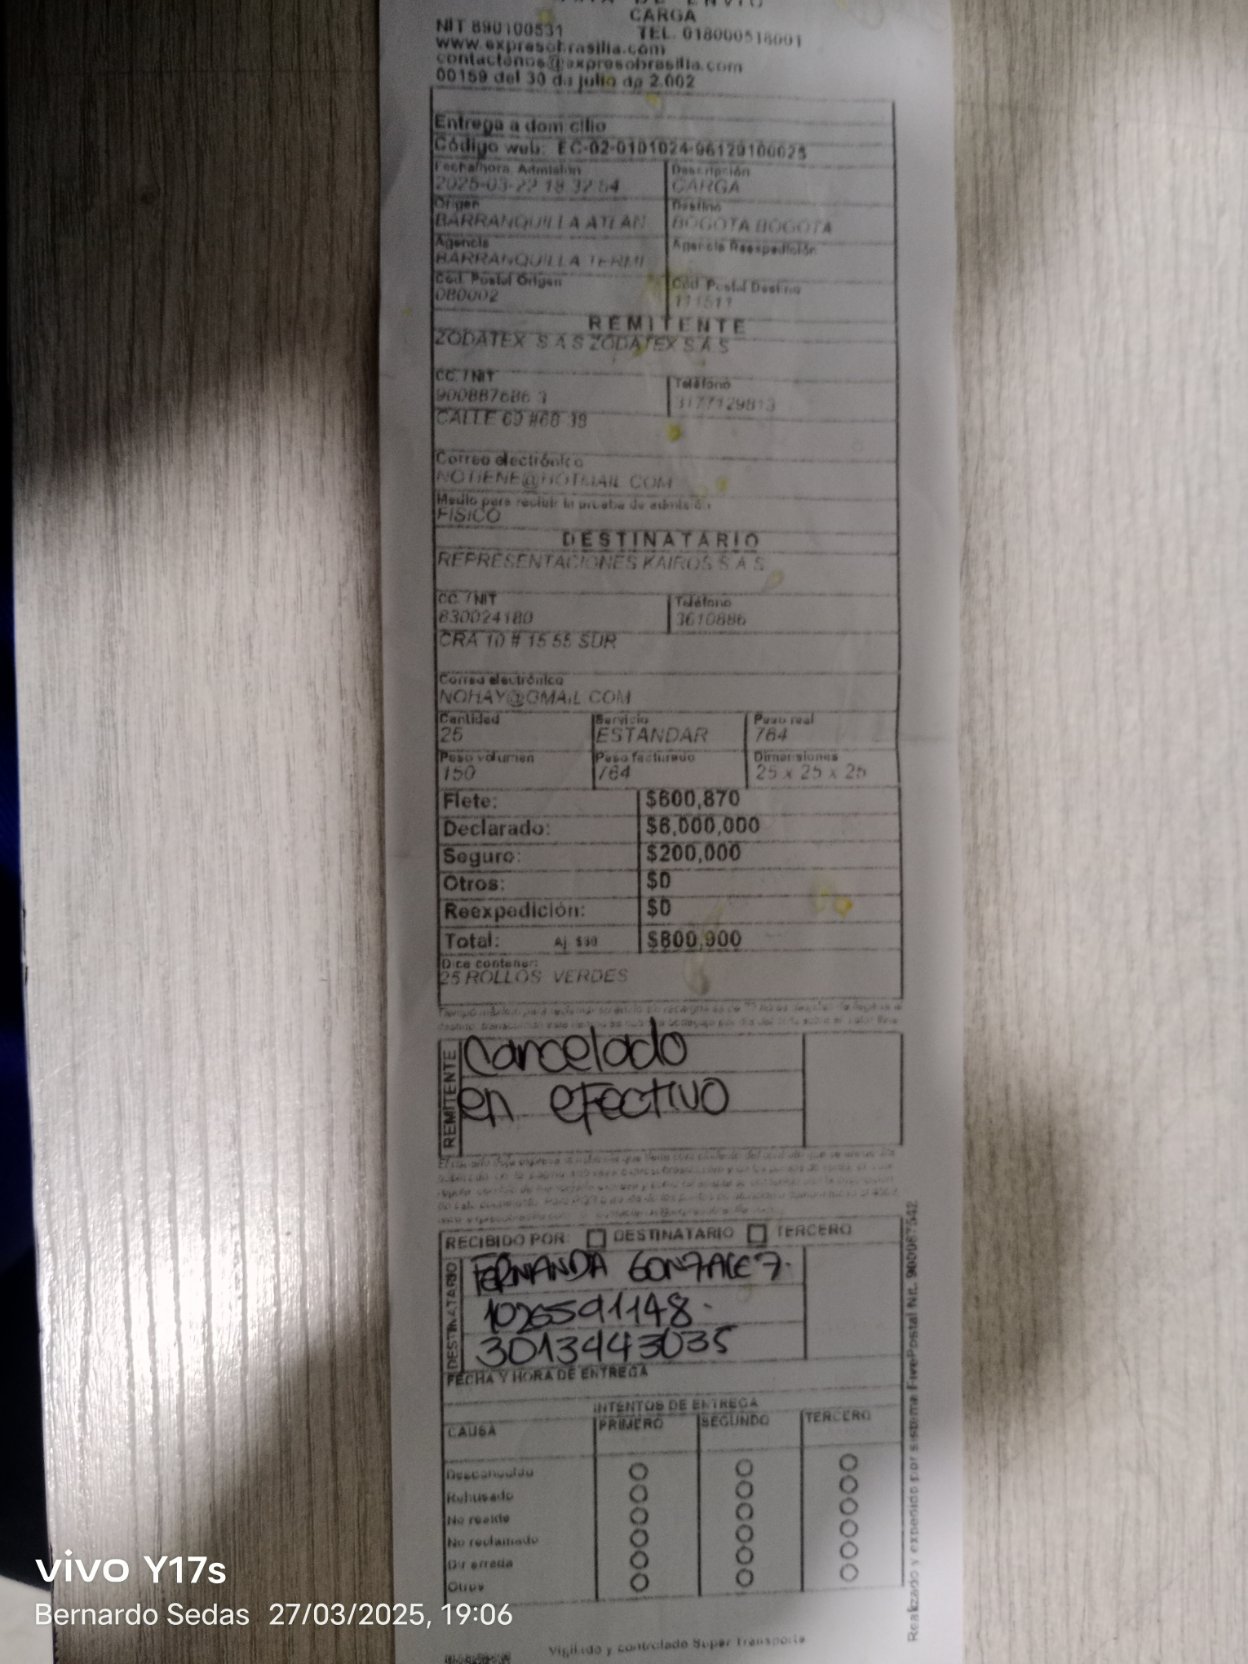 CARGA
NIT 890100531 TEL. 018000518001
www.expresobrasilia.com
contactenos@expresobrasilia.com
00159 del 30 de julio de 2.002
Entrega a domicilio
Código web: EC-02-0101024-96129100025
Fecha/hora Admisión Descripción
2025-03-22 18:32:54 CARGA
Origen Destino
BARRANQUILLA ATLAN BOGOTA BOGOTA
Agencia Agencia Reexpedición
BARRANQUILLA TERMI
Cód. Postal Origen Cód. Postal Destino
080002 111511
REMITENTE
ZODATEX S A S ZODATEX S A S
CC. / NIT Teléfono
900887686 3177129813
CALLE 69 #60 39
Correo electrónico
NOTIENE@HOTMAIL COM
Medio para recibir la prueba de admisión
FISICO
DESTINATARIO
REPRESENTACIONES KAIROS S A S
CC. / NIT Teléfono
830024180 3610886
CRA 10 # 15 55 SUR
Correo electrónico
NOHAY@GMAIL COM
Cantidad Servicio Peso real
25 ESTANDAR 764
Peso volumen Peso facturado Dimensiones
150 764 25 x 25 x 25
Flete: $600,870
Declarado: $6,000,000
Seguro: $200,000
Otros: $0
Reexpedición: $0
Total: Aj. $30 $800,900
Dice contener:
25 ROLLOS VERDES
REMITENTE
Cancelado
en efectivo
RECIBIDO POR: DESTINATARIO TERCERO
DESTINATARIO
FERNANDA GONZALEZ.
1026591148.
3013443035
FECHA Y HORA DE ENTREGA
INTENTOS DE ENTREGA
CAUSA PRIMERO SEGUNDO TERCERO
Desconocido
Rehusado
No reside
No reclamado
Dir errada
Otros
Realizado y expedido por sistema FivePostal Nit. 900087542
Vigilado y controlado Super Transporte
vivo Y17s
Bernardo Sedas 27/03/2025, 19:06